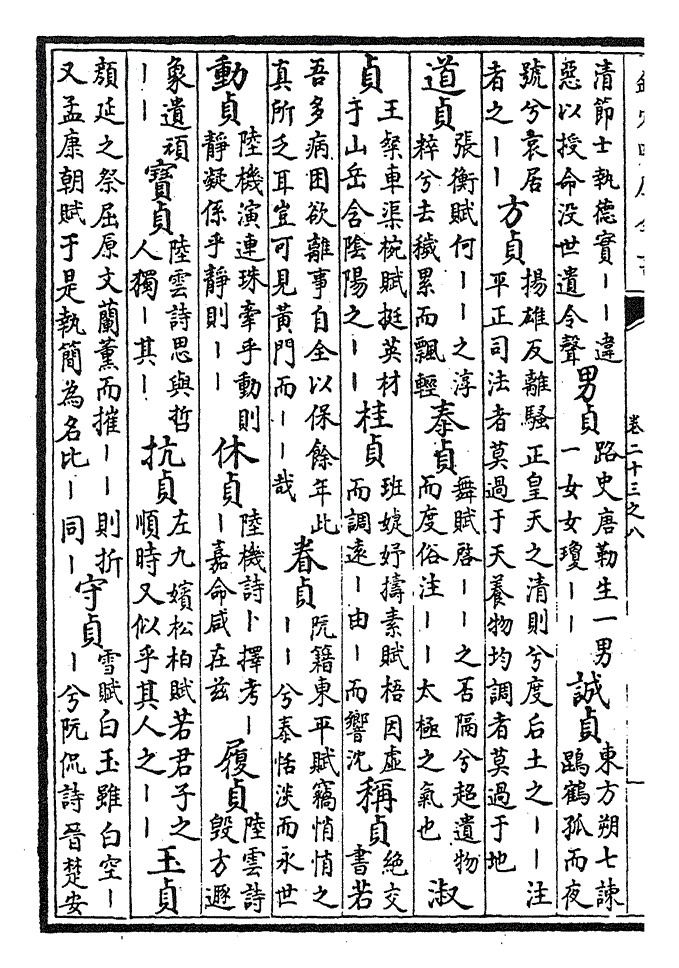 卷二十三之八
清節士執德實丨丨違
惡以授命没世遺令聲
男貞
路史唐勒生一男
一女女瓊丨丨
誠貞
東方朔七諫
鵾鶴孤而夜
號兮哀居
者之丨丨
方貞
揚雄反離騷正皇天之清則兮度后土之丨丨注
平正司法者莫過于天養物均調者莫過于地
道貞
張衡賦何丨丨之淳
粹兮去穢累而飄輕
泰貞
舞賦啓丨丨之否隔兮超遺物
而度俗注丨丨太極之氣也
淑
貞
王粲車渠椀賦挺英材
于山岳含陰陽之丨丨
桂貞
班婕妤擣素賦梧因虚
而調遠丨由丨而響沈
稱貞
絶交
書若
吾多病困欲離事自全以保餘年此
真所乏耳豈可見黄門而丨丨哉
眷貞
阮籍東平賦竊悄悄之
丨丨兮泰恬淡而永世
動貞
陸機演連珠牽乎動則
靜凝係乎靜則丨丨
休貞
陸機詩卜擇考丨
丨嘉命咸在兹
履貞
陸雲詩
毁方遯
象遺頑
丨丨
寶貞
陸雲詩思與哲
人獨丨其丨
抗貞
左九嬪松柏賦若君子之
順時又似乎其人之丨丨
玉貞
顔延之祭屈原文蘭薰而摧丨丨則折
又孟康朝賦于是執簡為名比丨同丨
守貞
雪賦白玉雖白空丨
丨兮阮侃詩晉楚安